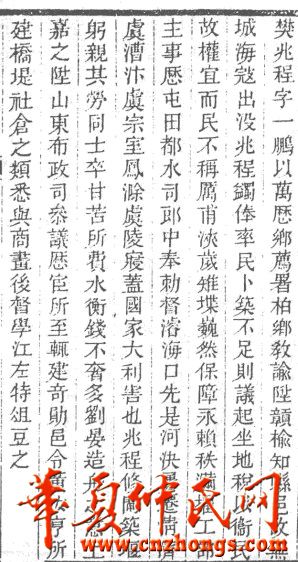 樊兆程字一鵬以萬歷鄉薦署柏鄉教諭陞贛榆知縣邑故無
城海寇出沒兆程鐲俸率民卜築不足則議起坐地稅以衛民
故權宜而民不稱厲甫浹歲雉堞巍然保障永賴秩滿擢工部
主事歷屯田都水司郎中奉勅督濬海口先是河決
虞漕汴虞宗室鳳滁虞陵寢蓋國家大利害也兆程修築堰
躬親其勞同士卒甘苦所費水衡錢不奢多劉晏造上
嘉之陞山東布政司叅議歷宦所至輒建奇勛邑令亨所
建橋堤社倉之類悉與商畫後督學江左特俎豆之
華夏仲氏网
www.cnzhongs.com